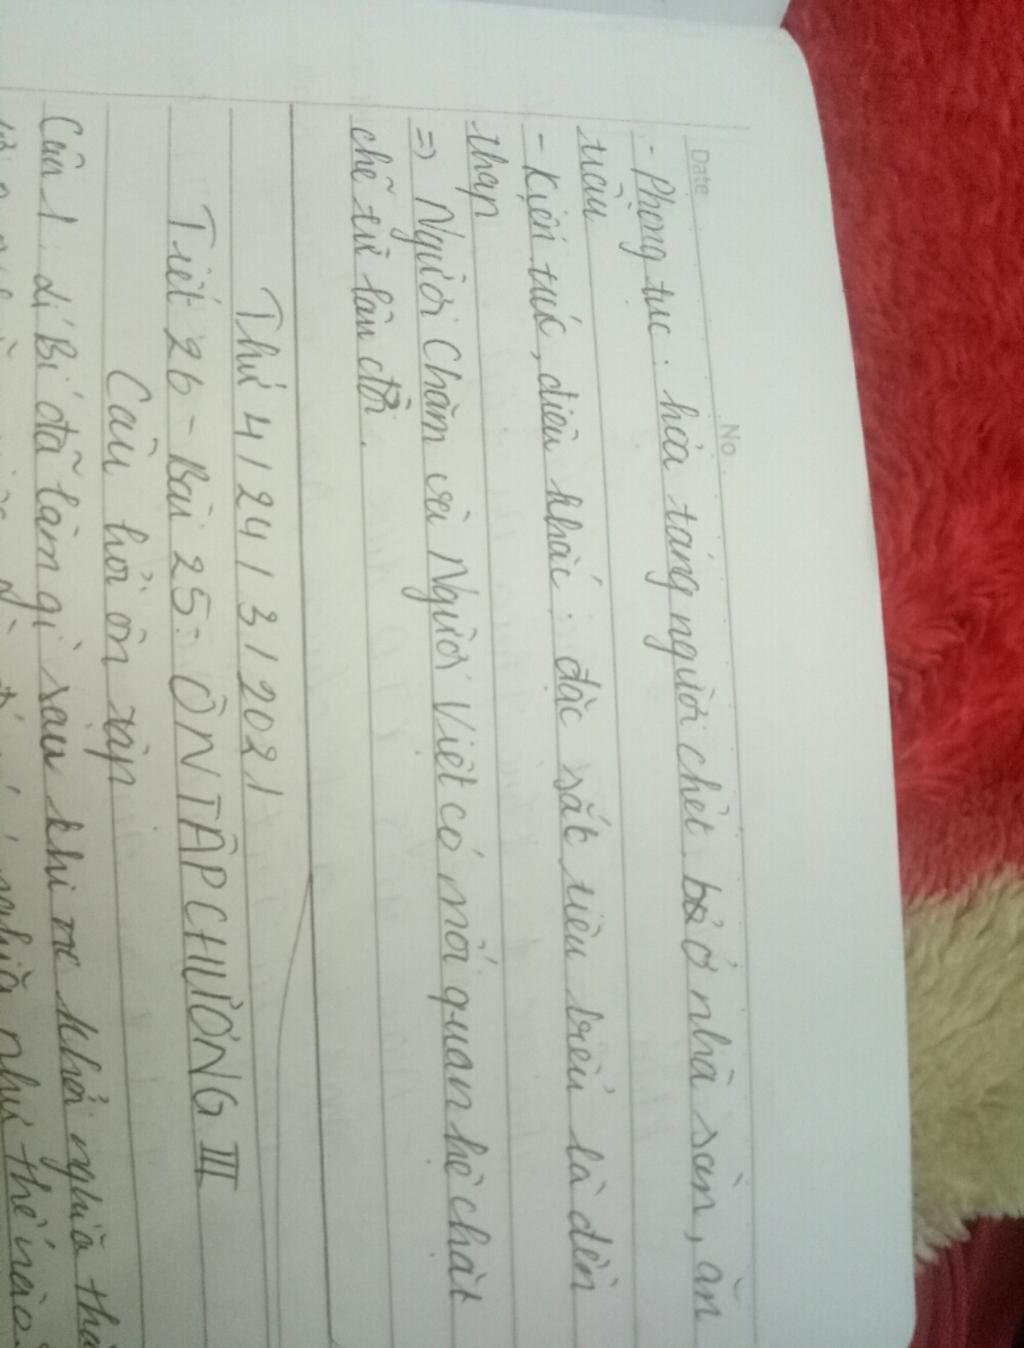 Date No.
- Phong tục: hỏa táng người chết, ở nhà sàn, ăn
trầu
- Kiến trúc, điêu khắc: đặc sắc tiêu biểu là đền
tháp
=> Người Chăm và Người Việt có mối quan hệ chặt
chẽ từ lâu đời.
Thứ 4 / 24 / 3 / 2021
Tiết 26 - Bài 25: ÔN TẬP CHƯƠNG III
Câu hỏi ôn tập
Câu 1: Lí Bí đã làm gì sau khi khởi nghĩa
nghĩa như thế nào?